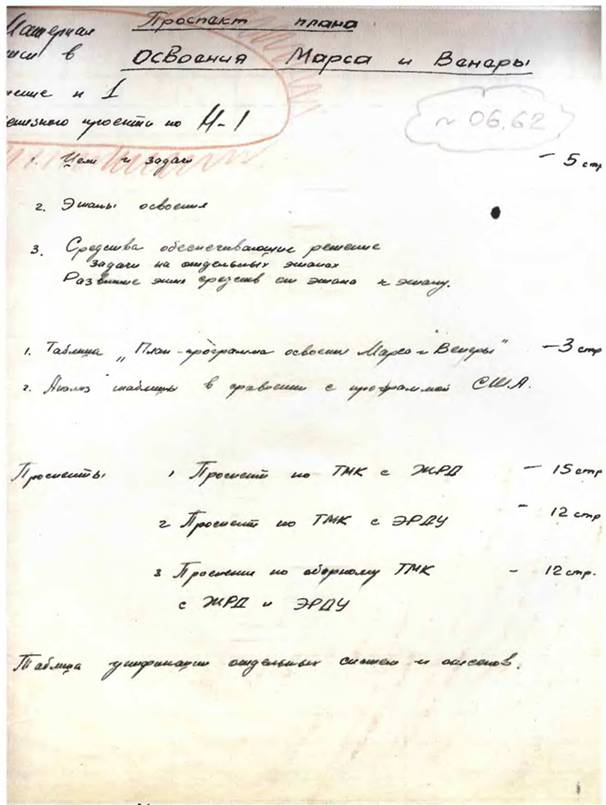 Проспект плана
освоения Марса и Венеры
Материал
в
н 1
проекта по Н-1
~ 06.62
1. Цели и задачи — 5 стр
2. Этапы освоения
3. Средства обеспечивающие решение
задачи на отдельных этапах
Развитие этих средств от этапа к этапу.
1. Таблица „План-программа освоения Марса и Венеры" — 3 стр
2. Анализ таблицы в сравнении с программой США.
Проспекты 1 Проспект по ТМК с ЖРД — 15 стр
2 Проспект по ТМК с ЭРДУ — 12 стр
3 Проспект по сборному ТМК — 12 стр.
с ЖРД и ЭРДУ
Таблица унификации отдельных систем и отсеков.